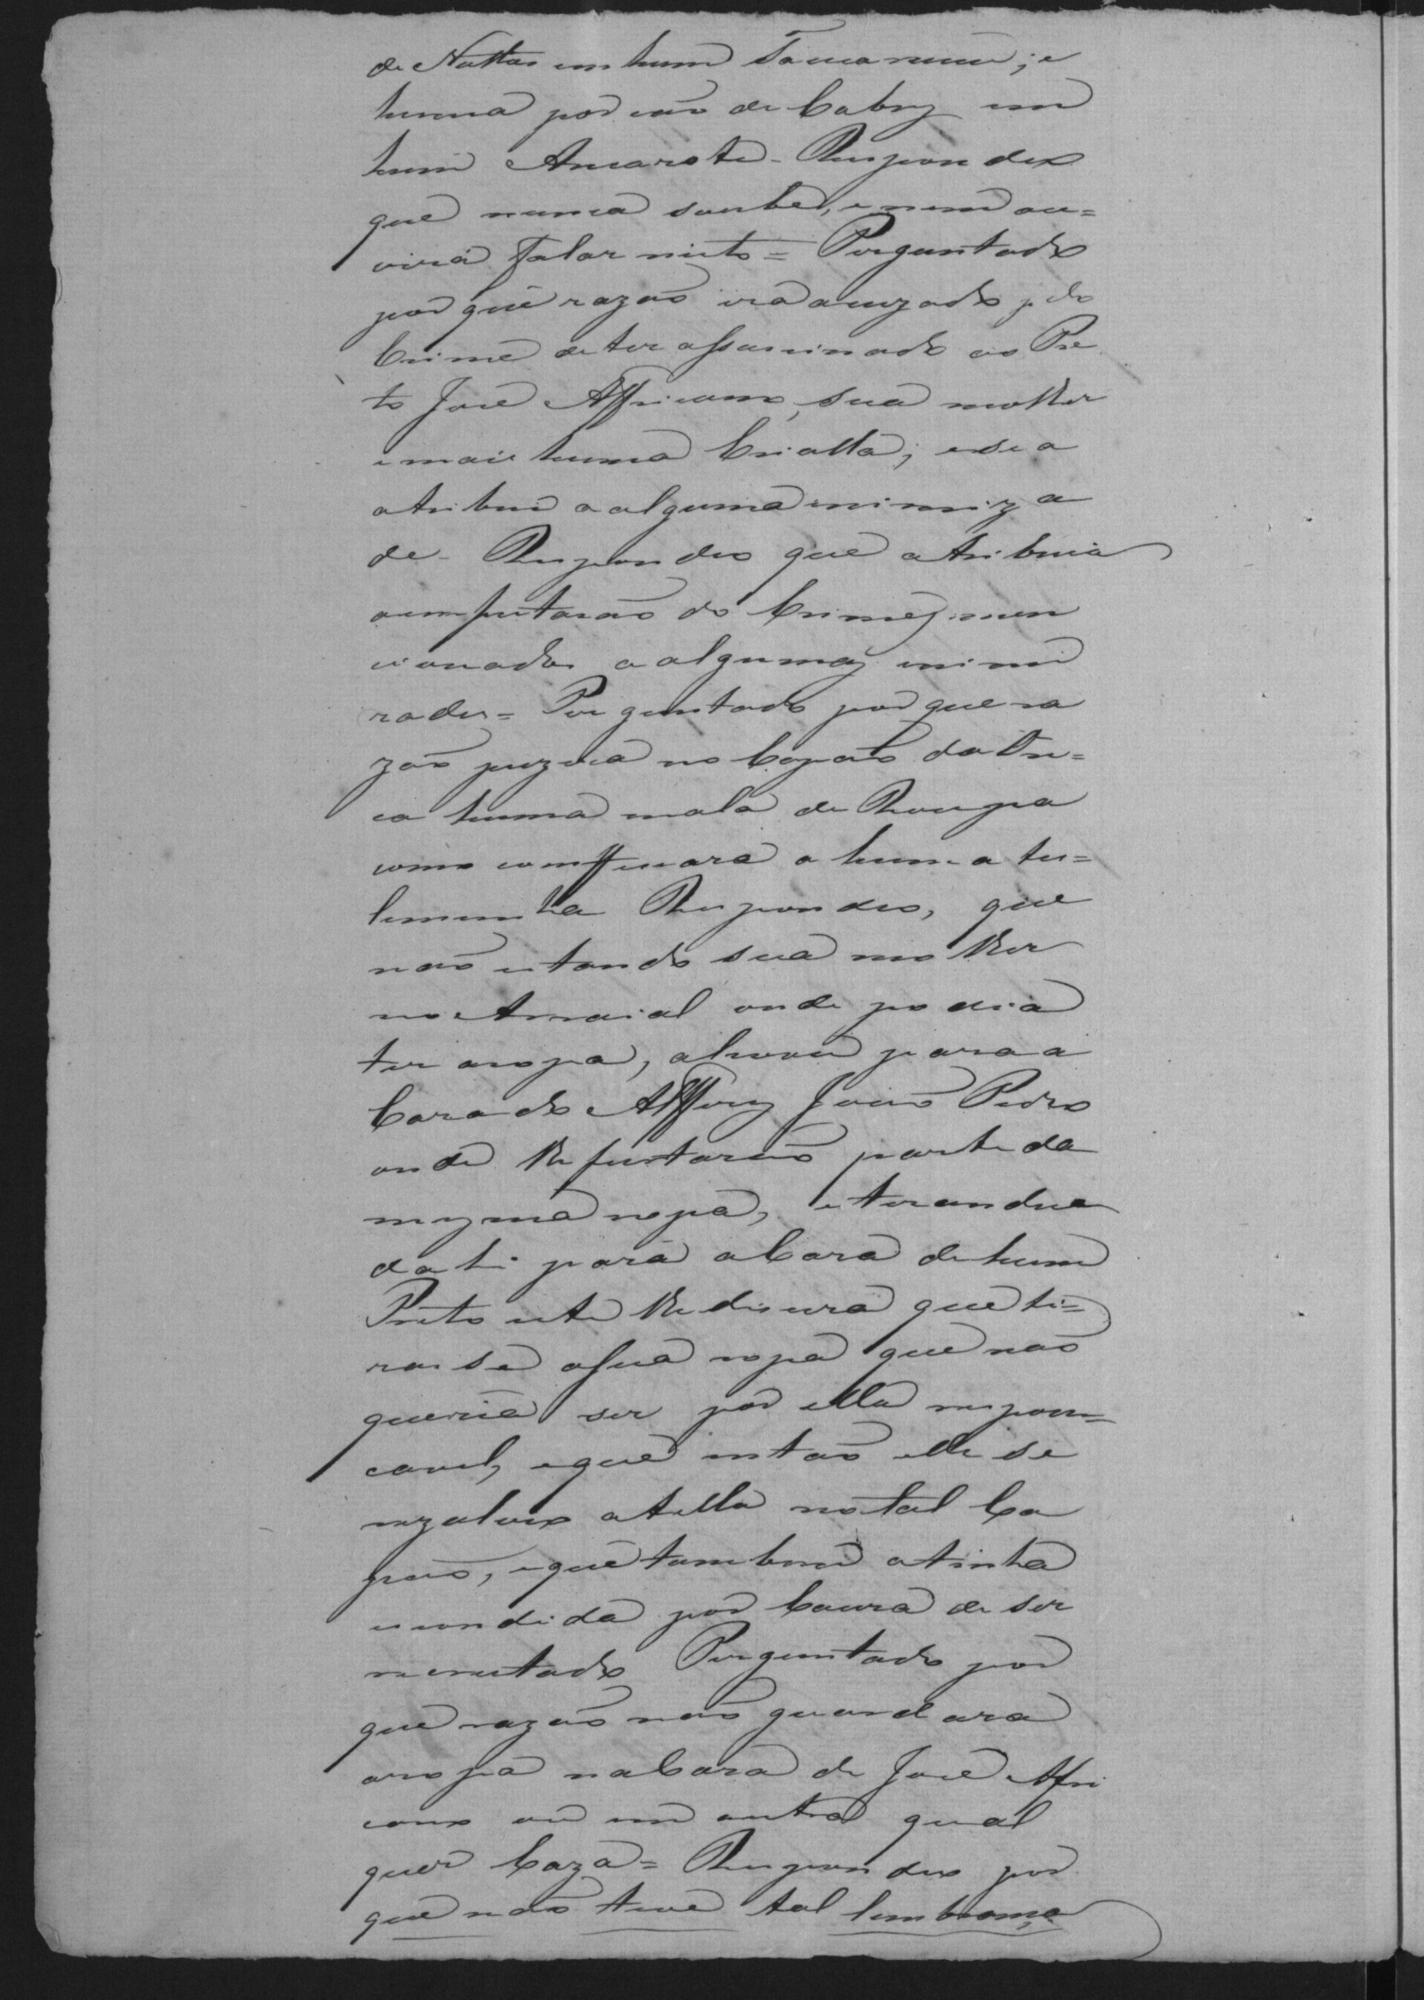 de Nottas em hum ; e
huma porcaõ de Cabros em
hum Amarote - Respondeo
que nunca soube, e nem ou=
vira falar nisto = Perguntado
por que razaõ era acuzado pelo
Crime de ter assassinado ao Pre
to José Affricano, sua molher
e mais huma Crialla; e se a
atribui a alguma inimiza
de - Respondeo que atribuia
a imputacaõ do Crimes men
cionados a algumas inimi
zades = Perguntado por que ra
zaõ puzera no Capaõ da 
ca huma mala de Roupa
como comffecara a huma tes=
temunha Respondeo, que
naõ estando sua molher
no Arraial onde podia
ter aropa, alevou para a
Casa do Alfferes Joaõ Pedro
onde lhe furtaraõ parte da
mesma ropa, e tirandoa
dahi para a Casa de hum
Preto este lhe dissera que ti=
rasse asua ropa que naõ
queria ser por ella respon=
cavel, e que entaõ elle se
rezolveo atella no tal Ca
paõ, e que tambem atinha
escondida por Cauza de ser
recrutado Perguntado por
que razaõ naõ guardara
aropa na Casa de José Afri
cano ou em outra qual
quer Caza = Respondeo por
que naõ teve tal lembrança